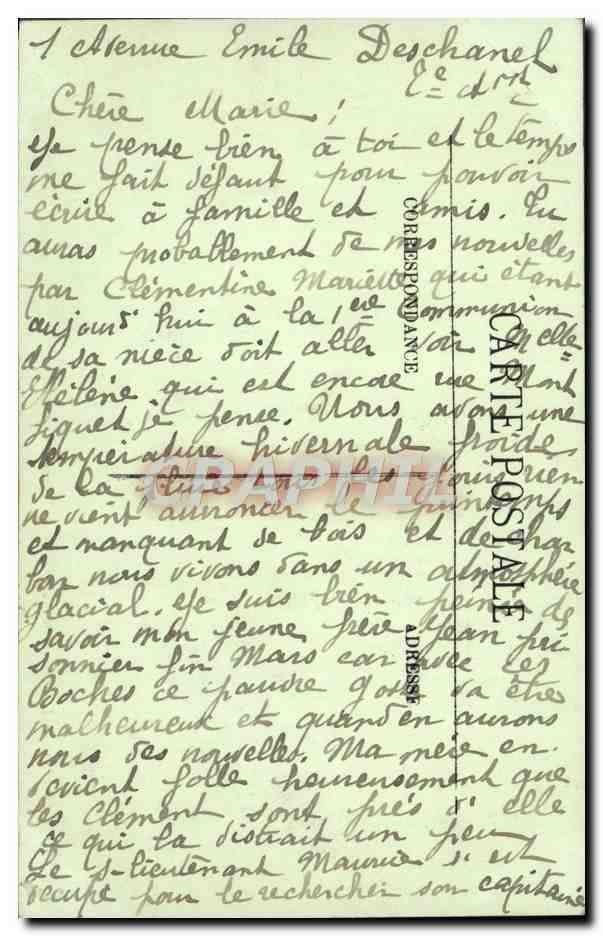 1 Avenue Emile Deschanel
7e Arrt
Chère Marie !
Je pense bien à toi et le temps
me fait défaut pour pouvoir
écrire à famille et amis. Tu
auras probablement de mes nouvelles
par Clémentine Mariette qui étant
aujourd'hui à la 1ere Communion
de sa nièce doit aller voir Melle
Hélène qui est encore rue Mont
figuet je pense. Nous avons une
température hivernale froide
de la pluie tous les jours rien
ne vient annoncer le printemps
et manquant de bois et de char
bon nous vivons dans un atmosphère
glacial. Je suis bien peinée de
savoir mon jeune frère Jean pri
sonnier fin Mars car avec ces
Boches ce pauvre gosse va être
malheureux et quand en aurons
nous des nouvelles. Ma mère en
devient folle heureusement que
les Clément sont près d'elle
ce qui la distrait un peu
Le s-lieutenant Maurice s'est
occupé pour le rechercher son capitaine
CARTE POSTALE
CORRESPONDANCE
ADRESSE
CPAPHIL